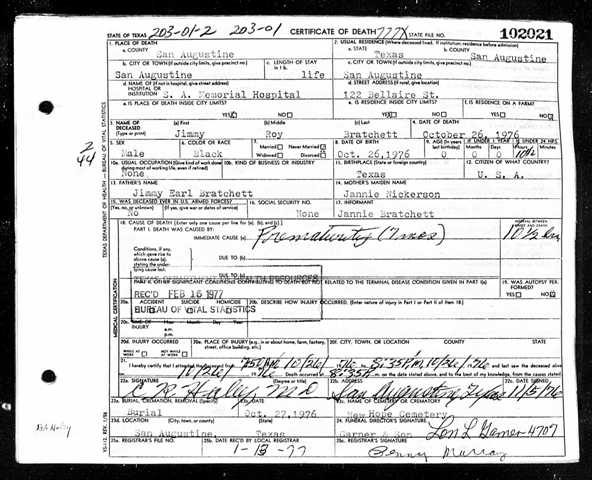 203-01-2 203-01
STATE OF TEXAS CERTIFICATE OF DEATH 777X STATE FILE NO. 102021
1. PLACE OF DEATH 2. USUAL RESIDENCE (Where deceased lived. If institution: residence before admission)
a. COUNTY San Augustine a. STATE Texas b. COUNTY San Augustine
b. CITY OR TOWN (If outside city limits, give precinct no.) c. LENGTH OF STAY in 1 b. c. CITY OR TOWN (If outside city limits, give precinct no.)
San Augustine life San Augustine
d. NAME OF (If not in hospital, give street address) HOSPITAL OR INSTITUTION S. A. Memorial Hospital 122 Bellaire St.
e. IS PLACE OF DEATH INSIDE CITY LIMITS? e. IS RESIDENCE INSIDE CITY LIMITS? f. IS RESIDENCE ON A FARM?
YES NO YES NO YES NO
3. NAME OF DECEASED (Type or print) (a) First (b) Middle (c) Last 4. DATE OF DEATH
Jimmy Roy Bratchett October 26, 1976
5. SEX 6. COLOR OR RACE 7. Married Never Married Widowed Divorced 8. DATE OF BIRTH 9. AGE (In years last birthday) IF UNDER 1 YEAR IF UNDER 24 HRS.
Male Black Oct. 26, 1976 0 0 0
10a. USUAL OCCUPATION (Give kind of work done during most of working life, even if retired) 10b. KIND OF BUSINESS OR INDUSTRY 11. BIRTHPLACE (State or foreign country) 12. CITIZEN OF WHAT COUNTRY?
None Texas U. S. A.
13. FATHER'S NAME 14. MOTHER'S MAIDEN NAME
Jimmy Earl Bratchett Jannie Nickerson
15. WAS DECEASED EVER IN U.S. ARMED FORCES? 16. SOCIAL SECURITY NO. 17. INFORMANT
(Yes, no, or unknown) (If yes, give war or dates of service)
No None Jannie Bratchett
18. CAUSE OF DEATH [Enter only one cause per line for (a), (b), and (c).] INTERVAL BETWEEN ONSET AND DEATH
PART I. DEATH WAS CAUSED BY:
IMMEDIATE CAUSE (a) Prematurity (7 mos) 10½ hrs
Conditions, if any, which gave rise to above cause (a), stating the underlying cause last.
DUE TO (b)
DUE TO (c)
PART II. OTHER SIGNIFICANT CONDITIONS CONTRIBUTING TO DEATH BUT NOT RELATED TO THE TERMINAL DISEASE CONDITION GIVEN IN PART I(a) 19. WAS AUTOPSY PERFORMED?
REC'D FEB 15 1977 YES NO
20a. ACCIDENT SUICIDE HOMICIDE 20b. DESCRIBE HOW INJURY OCCURRED. (Enter nature of injury in Part I or Part II of item 18.)
BUREAU OF VITAL STATISTICS
20c. TIME OF INJURY a.m. p.m.
20d. INJURY OCCURRED 20e. PLACE OF INJURY (e.g., in or about home, farm, factory, street, office building, etc.) 20f. CITY, TOWN, OR LOCATION COUNTY STATE
21. I hereby certify that I attended the deceased from 10/26/ 76 8:35 PM 10/26/ 76 and last saw the deceased alive
on 10/26/ 76 Death occurred at 8:35 P. m. on the date stated above, and to the best of my knowledge, from the causes stated.
22a. SIGNATURE (Degree or title) 22b. ADDRESS 22c. DATE SIGNED
C R Haley MD San Augustine Texas 11/5/76
23a. BURIAL, CREMATION, REMOVAL (Specify) 23b. DATE 23c. NAME OF CEMETERY OR CREMATORY
Burial Oct. 27, 1976 New Hope Cemetery
23d. LOCATION (City, town, or county) (State) 24. FUNERAL DIRECTOR'S SIGNATURE
San Augustine, Texas Garner & Son Lon L Garner 4707
25a. REGISTRAR'S FILE NO. 25b. DATE REC'D BY LOCAL REGISTRAR 25c. REGISTRAR'S SIGNATURE
1-13-77 Penny Murray
TEXAS DEPARTMENT OF HEALTH — BUREAU OF VITAL STATISTICS
MEDICAL CERTIFICATION
2/44